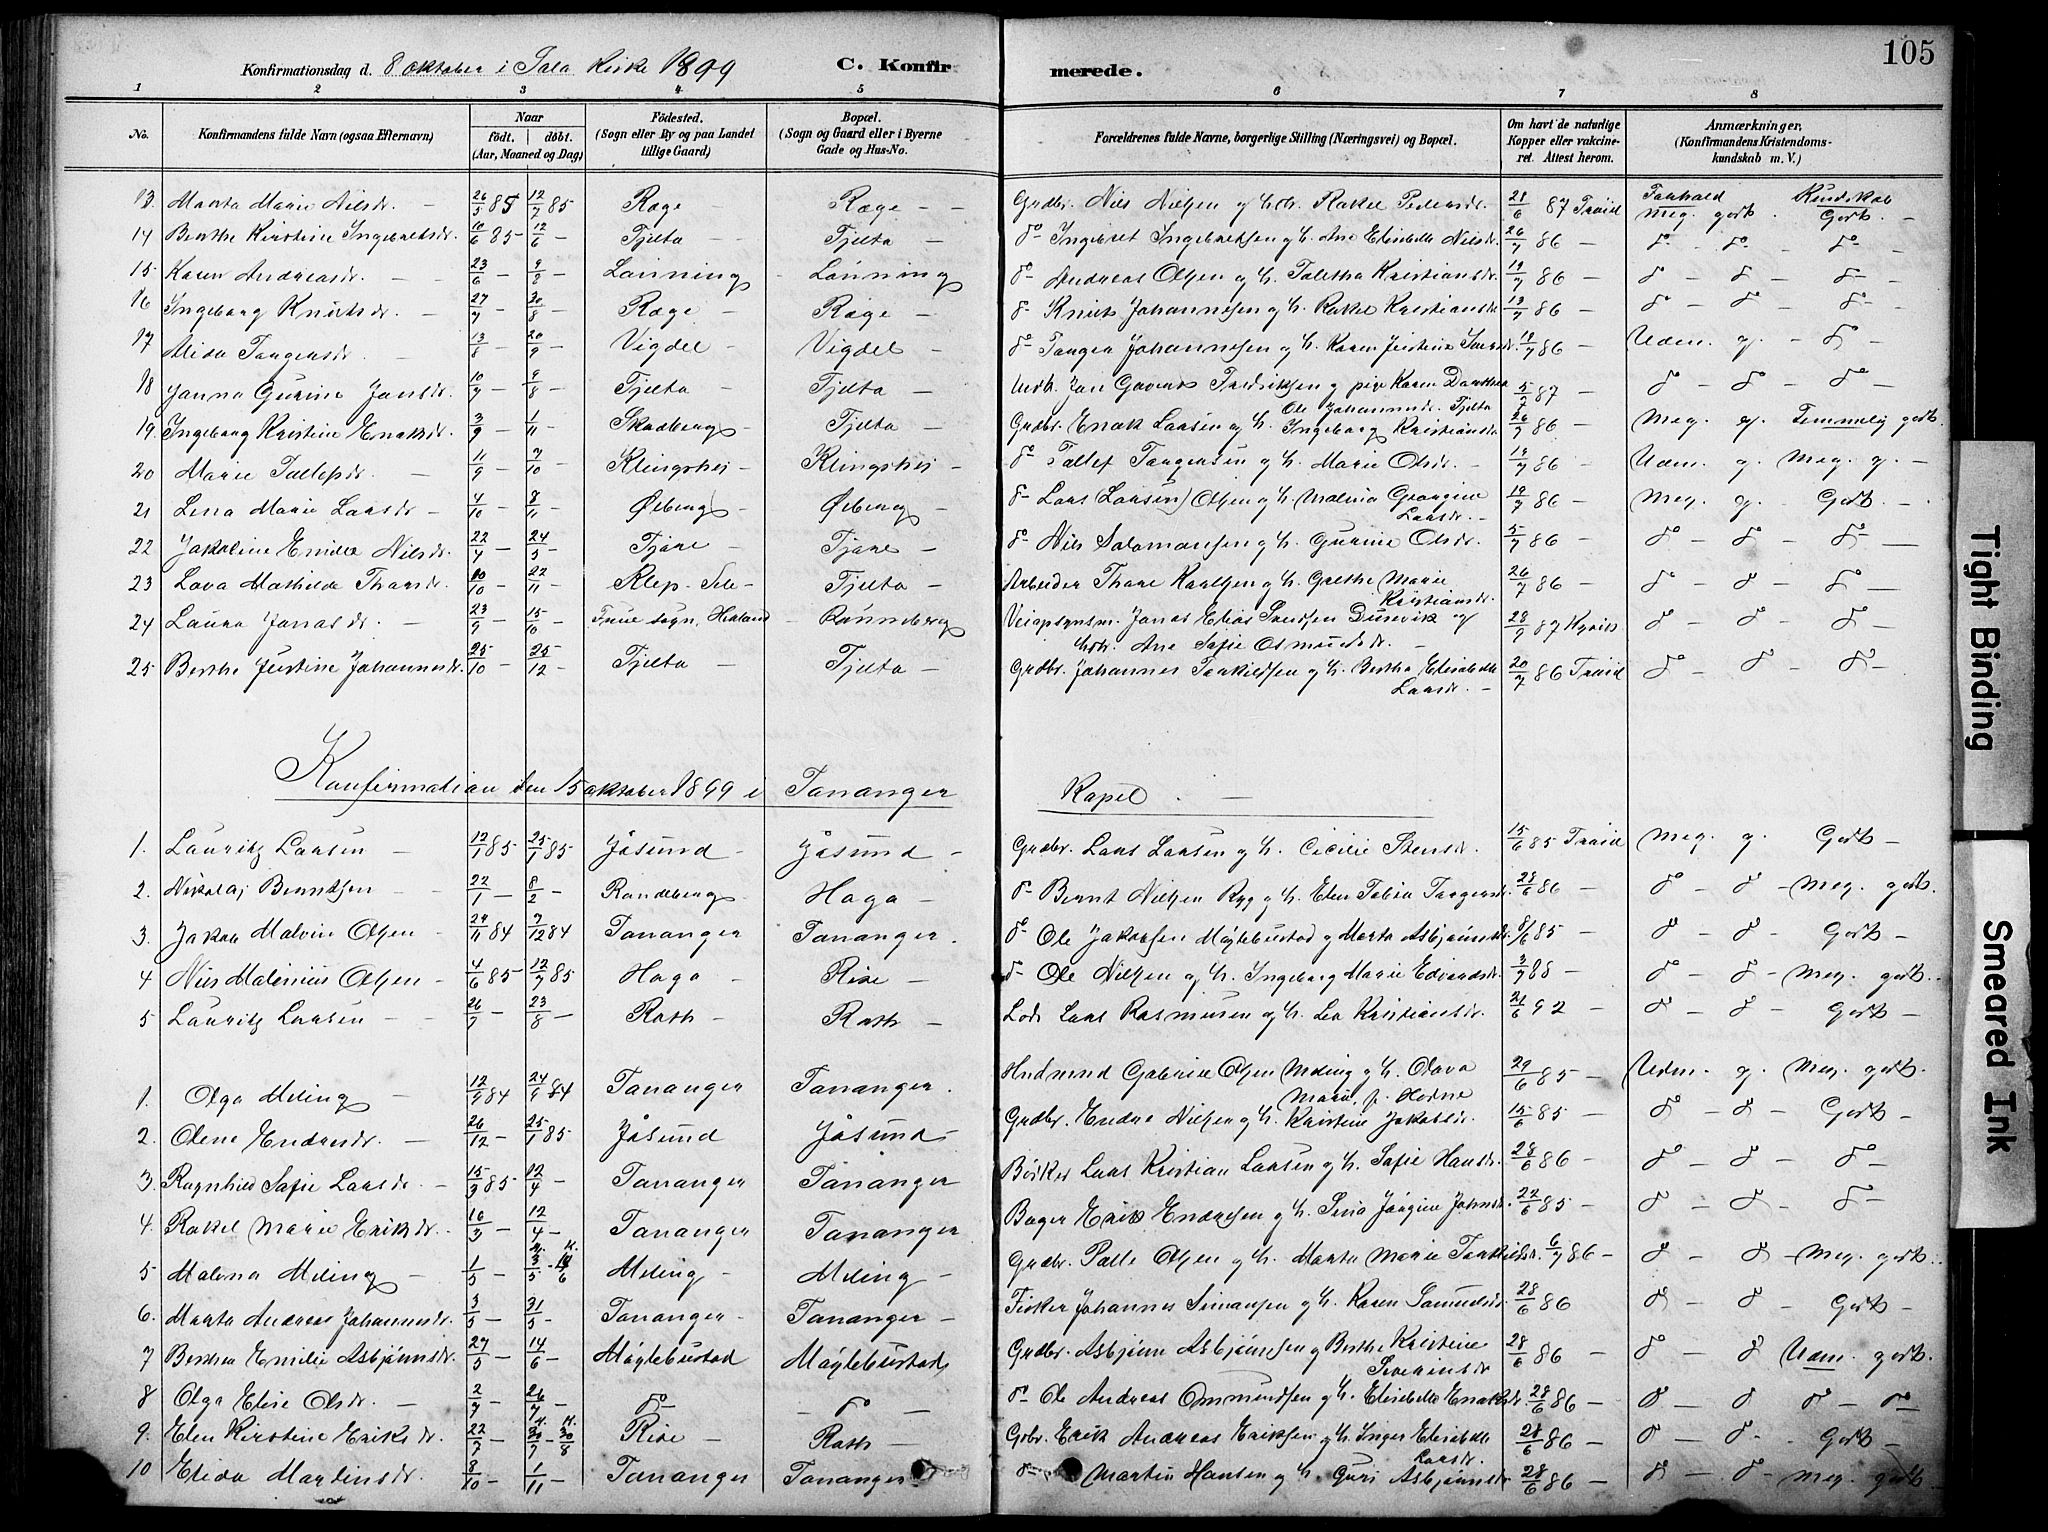 105
Konfirmationsdag d. 8 oktober i Sola Kirke 1899 C. Konfirmerede.
1 2 3 4 5 6 7 8
No. Konfirmandens fulde Navn (ogsaa Efternavn) Naar født. døbt. (Aar, Maaned og Dag) Fødested. (Sogn eller By og paa Landet tillige Gaard) Bopæl. (Sogn og Gaard eller i Byerne Gade og Hus-No. Forældrenes fulde Navne, borgerlige Stilling (Næringsvei) og Bopæl. Om havt de naturlige Kopper eller vakcineret. Attest herom. Anmærkninger. (Konfirmandens Kristendomskundskab m. V.)
13. Marta Marie Nilsdr. 26/5 85 12/7 85 Røge Røge Grdbr. Nils Nielsen og Hstr. Rakel Pedersdr. 28/6 87 Meg. godt. Kundskab Godt.
14 Berthe Kirstine Ingebretsdr. 10/6 85 12/6 Tjelta Tjelta do Ingebret Ingebretsen og H. Ane Elisabeth Nilsdr. 26/7 86 do do do
15. Karen Andreasdr. 23/6 9/8 Lønning Lønning do Andreas Olsen og H. Taletha Kristiansdr. 19/7 86 do do do
16 Ingeborg Knutsdr. 27/7 30/8 Røge Røge do Knut Johannesen og H. Rakel Kristiansdr. 19/7 86 do do do
17 Alida Torgersdr. 13/8 20/9 Vigdel Vigdel do Torger Johannesen og H. Karen Justine 19/7 86 Udm. g. do
18 Janna Gurine Jansdr. 10/7 9/8 Tjelta Tjelta Fredriksen og pige Karen Dorthea 5/7 87 do do do
Ole Johannesdr. Tjelta
19. Ingeborg Kristine Enoksdr. 3/9 1/11 Skadberg Tjelta Grdbr. Enok Larsen og H. Ingeborg Kristiansdr. 26/7 86 Meg. g. Temmelig godt.
20 Marie Tallefsdr. 11/9 7/10 Klingshei Klingshei do Tallef Torgersen og H. Marie Olsdr. 19/7 86 Udm. g. Meg. g.
21 Lena Marie Larsdr. 4/10 8/11 Øiberg Øiberg do Lars (Larsen) Olsen og H. Malena Georgine Larsdr. 19/7 86 Meg. g. Godt.
22 Jakobine Emilie Nilsdr. 22/4 24/5 Tjøre Tjøre do Nils Salomonsen og H. Gurine Olsdr. 5/7 86 do do do
23 Lova Mathilde Thoresdr. 10/10 22/11 Klep. Tjelta Arbeider Thore Karlsen og H. Grethe Marie Kristiansdr. 26/7 86 do do do
24 Laura Jonasdr. 23/9 15/10 Frue sogn, Hetland Rønneberg Veiopsynsm. Jonas Elias Svendsen Dunvik og Hstr. Ane Sofie Osmundsdr. 28/9 87 do do do
25 Berthe Justine Johannesdr. 25/10 25/12 Tjelta Tjelta Grdbr. Johannes Torkildsen og H. Bertha Elisabeth Larsdr. 20/7 86 do do do
Konfirmation den 15 oktober 1899 i Tananger Kapel.
1. Lauritz Larsen 12/1 85 25/1 85 Jåsund Jåsund Grdbr. Lars Larsen og H. Cecilie Stensdr. 15/6 85 Meg. g. Godt
2. Nikolaj Berntsen 22/1 8/2 Randeberg Haga do Bernt Nielsen Ryg og H. Elen Tobia Torgersdr. 28/6 86 do do Meg. godt.
3. Jakob Malvin Olsen 24/11 84 7/12 84 Tananger Tananger. do Ole Jakobsen Møglebustad og Marta Asbjørnsdr. 8/6 85 do do Godt
4 Nils Malenius Olsen 4/6 85 12/7 85 Haga Rise do Ole Nilsen og H. Ingeborg Marie Edvardsdr. 3/7 88 do do Meg. godt.
5 Lauritz Larsen 26/7 23/8 Roth Roth Lods Lars Rasmusen og H. Lea Kristiansdr. 21/6 92 do do Godt
1. Olga Meling 12/9 84 24/9 84 Tananger Tananger. Gabriel Olsen Meling og H. Olava Marie, f. Horne 29/6 85 Udm. g. Meg. godt.
2. Olene Endresdr. 26/12 25/1 85 Jåsund Jåsund Grdbr. Endre Nilsen og H. Kristine Jakobsdr. 15/6 85 do do Godt
3. Ragnhild Sofie Larsdr. 15/3 85 12/4 Tananger Tananger Bødker Lars Kristian Larsen og H. Sofie Hansdr. 28/6 86 do do do
4. Rakel Marie Eriksdr. 16/3 12/4 Tananger Tananger Bager Erik Endresen og H. Sina Jørgine Johnsdr. 22/6 85 do do do
5 Malena Meling 1/5 3/5 Meling Meling Grdbr. Palle Olsen og H. Marta Marie Torkildsdr. 6/7 86 do do Meg. godt.
6. Marta Andrea Johannesdr. 3/5 31/5 Tananger Tananger Fisker Johannes Simonsen og H. Karen Samuelsdr. 28/6 86 do do Godt
7 Berthea Emilie Asbjørnsdr. 27/5 14/6 Møglebustad Møglebustad Grdbr. Asbjørn Asbjørnsen og Berthe Kristine Severinsdr 28/6 86 do do Udm. godt.
8 Olga Elise Olsdr. 2/7 26/7 do do do Ole Andreas Ommundsen og H. Elisabeth Enoksdr. 28/6 86 do do do do
9. Elen Kirstine Eriksdr. 22/7 30/7 30/8 Risa Roth Gdbr. Erik Andreas Eriksen og H. Inger Elisabeth Larsdr. 28/6 86 do do Godt
10 Elida Martinsdr. 8/10 1/11 Tananger Tananger do Martin Hansen og H. Guri Asbjørnsdr. 28/6 86 do do Meg. godt
Tight Binding
Smeared Ink